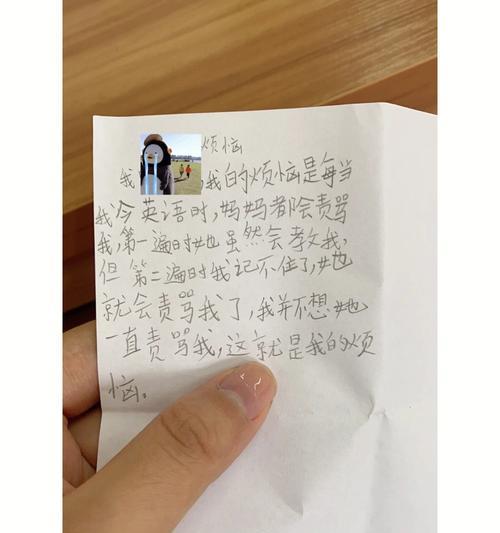 烦恼
我 ,我的烦恼是每当
我念英语时,妈妈都会责骂
我,第一遍时她虽然会教我,
但第二遍时我记不住了,她
就会责骂我了,我并不想她
一直责骂我,这就是我的烦
恼。